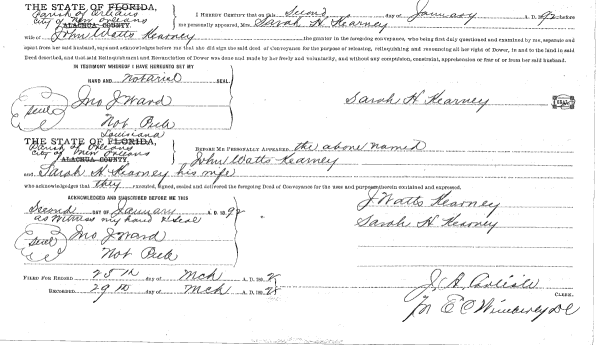 THE STATE OF FLORIDA,
Parish of Orleans
City of New Orleans
ALACHUA COUNTY.
I HEREBY CERTIFY that on this Second day of January A. D. 1892 before
me personally appeared, Mrs. Sarah H. Kearney
wife of John Watts Kearney the grantor in the foregoing conveyance, who being first duly questioned and examined by me, separate and
apart from her said husband, says and acknowledges before me that she did sign the said deed of Conveyance for the purpose of releasing, relinquishing and renouncing all her right of Dower, in and to the land in said
Deed described, and that said Relinquishment and Renunciation of Dower was done and made by her freely and voluntarily, and without any compulsion, constraint, apprehension or fear of or from her said husband.
IN TESTIMONY WHEREOF I HAVE HEREUNTO SET MY
HAND AND Notarial SEAL
Seal Jno J Ward
Not Pub
Sarah H Kearney SEAL
Louisiana
THE STATE OF FLORIDA,
Parish of Orleans
City of New Orleans
ALACHUA COUNTY.
BEFORE ME PERSONALLY APPEARED, the above named
John Watts Kearney
and Sarah H. Kearney his wife
who acknowledges that they executed, signed, sealed and delivered the foregoing Deed of Conveyance for the uses and purposes therein contained and expressed.
ACKNOWLEDGED AND SUBSCRIBED BEFORE ME THIS
Second DAY OF January A. D. 1892
as Witness my hand & seal
Seal Jno J Ward
Not Pub
J Watts Kearney
Sarah H Kearney
FILED FOR RECORD 25th day of Mch A. D. 1892
RECORDED 29th day of Mch A. D. 1892
J. A. Carlisle CLERK.
Pr E C Wimberly DC